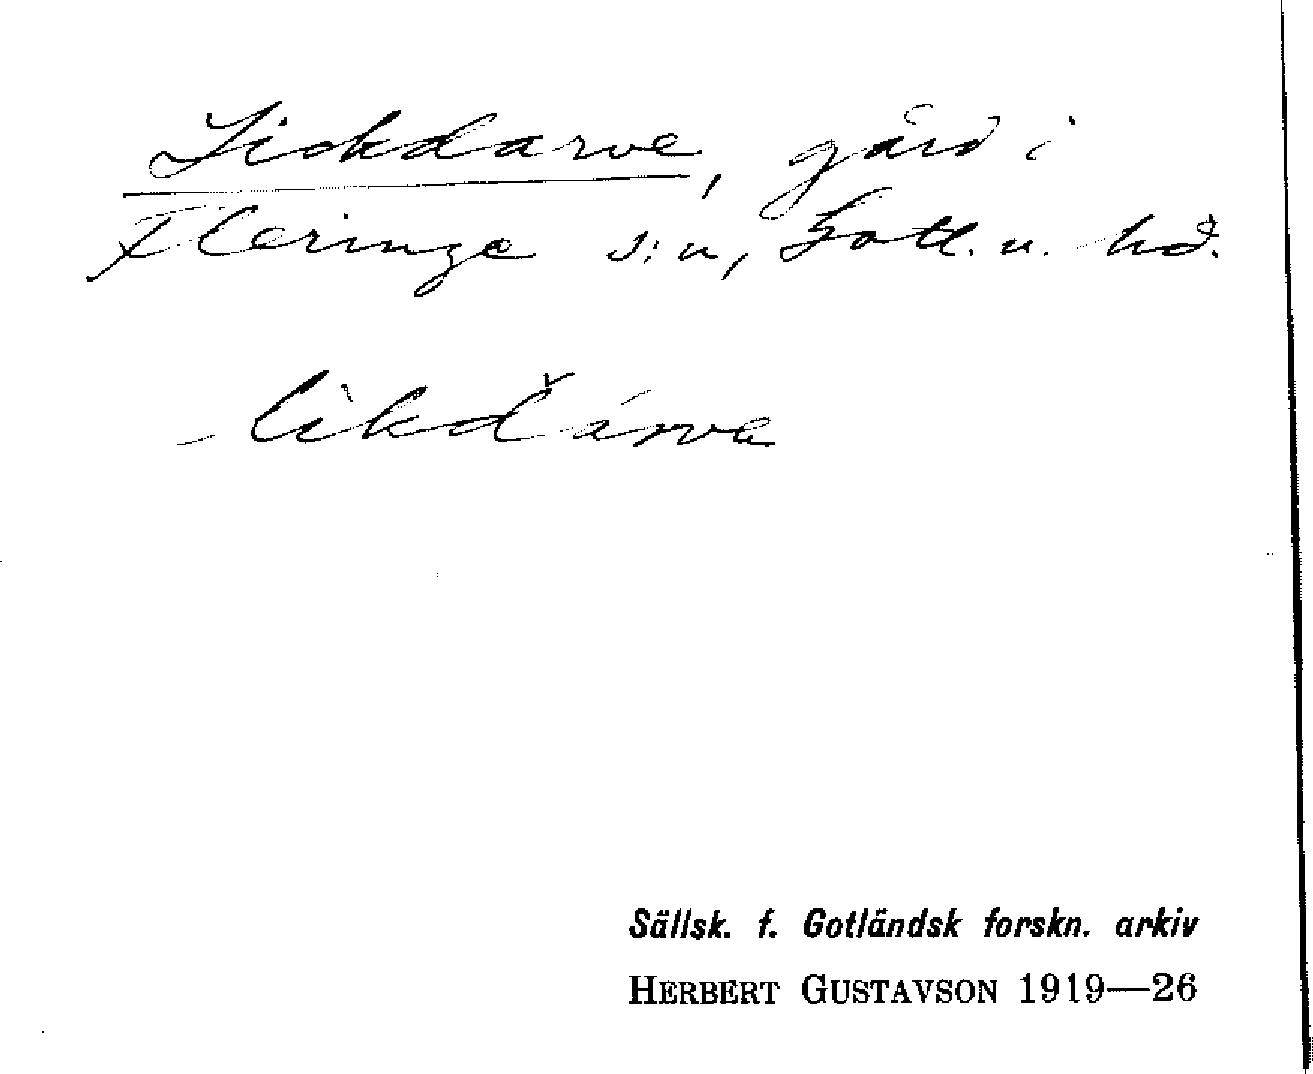 Lickdarve, gård i
Fleringe s:n, Gotl. n. hd.
- likd̆árva
Sällsk. f. Gotländsk forskn. arkiv
HERBERT GUSTAVSON 1919—26